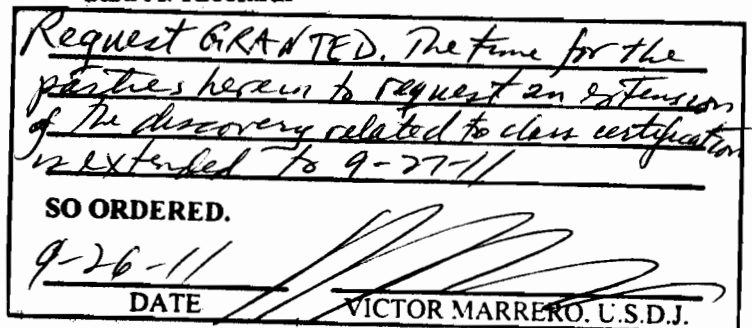 Request GRANTED. The time for the
parties herein to request an extension
of the discovery related to class certification
is extended to 9-27-11
SO ORDERED.
9-26-11
DATE VICTOR MARRERO. U.S.D.J.